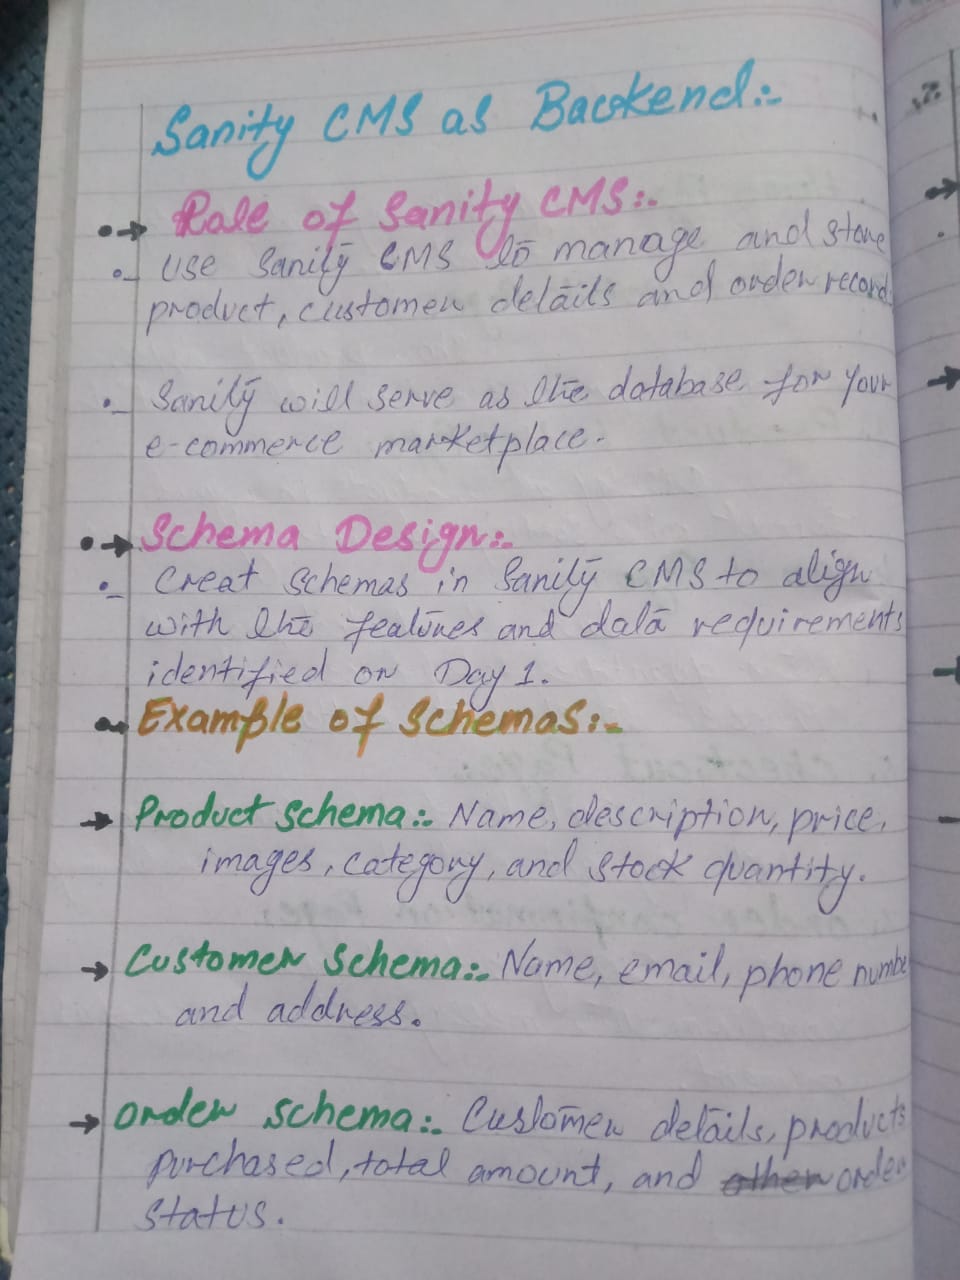 Sanity CMS as Backend:-
Role of Sanity CMS:-
Use Sanity CMS to manage and store
product, customer details and order record
Sanity will serve as the database for your
e-commerce marketplace.
Schema Design:-
Creat schemas in Sanity CMS to align
with the features and data requirements
identified on Day 1.
Example of Schemas:-
Product Schema:- Name, description, price,
images, category, and stock quantity.
Customer Schema:- Name, email, phone numbe
and address.
Order Schema:- Customer details, products
purchased, total amount, and other order
status.